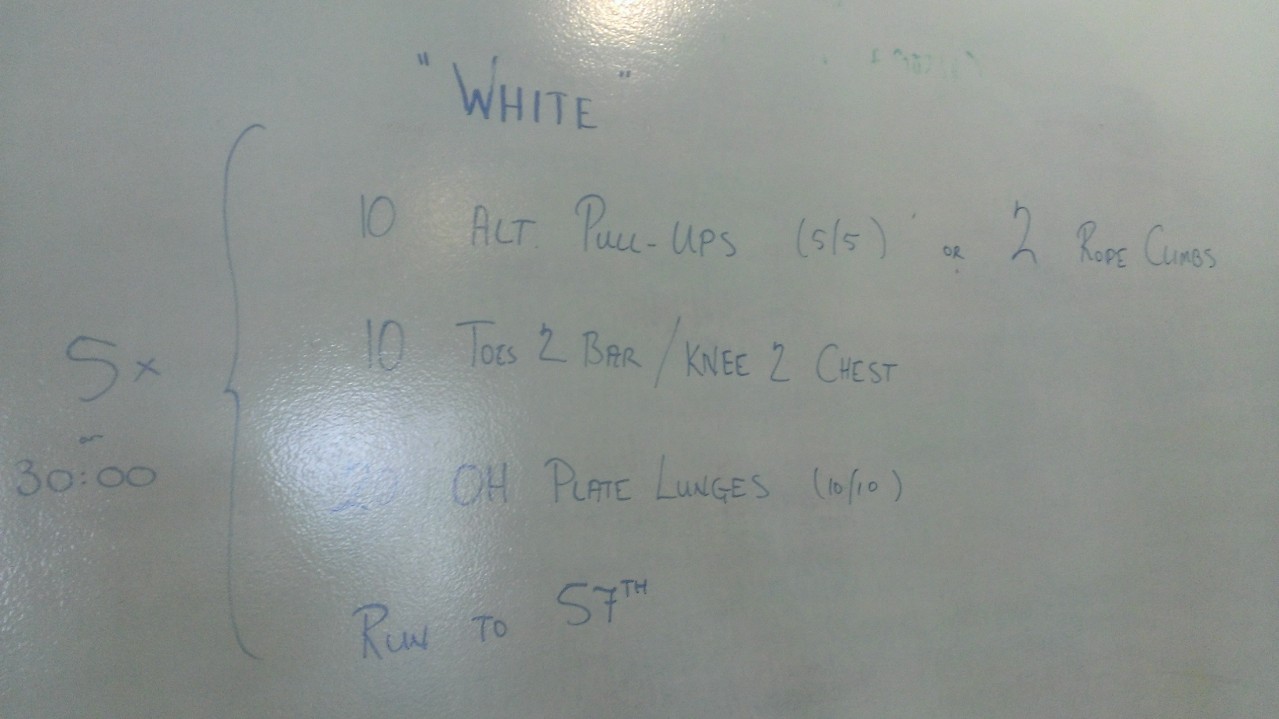 "WHITE"
10 ALT. PULL-UPS (5/5) OR 2 ROPE CLIMBS
10 TOES 2 BAR / KNEE 2 CHEST
5x
or
30:00
20 OH PLATE LUNGES (10/10)
RUN TO 57TH